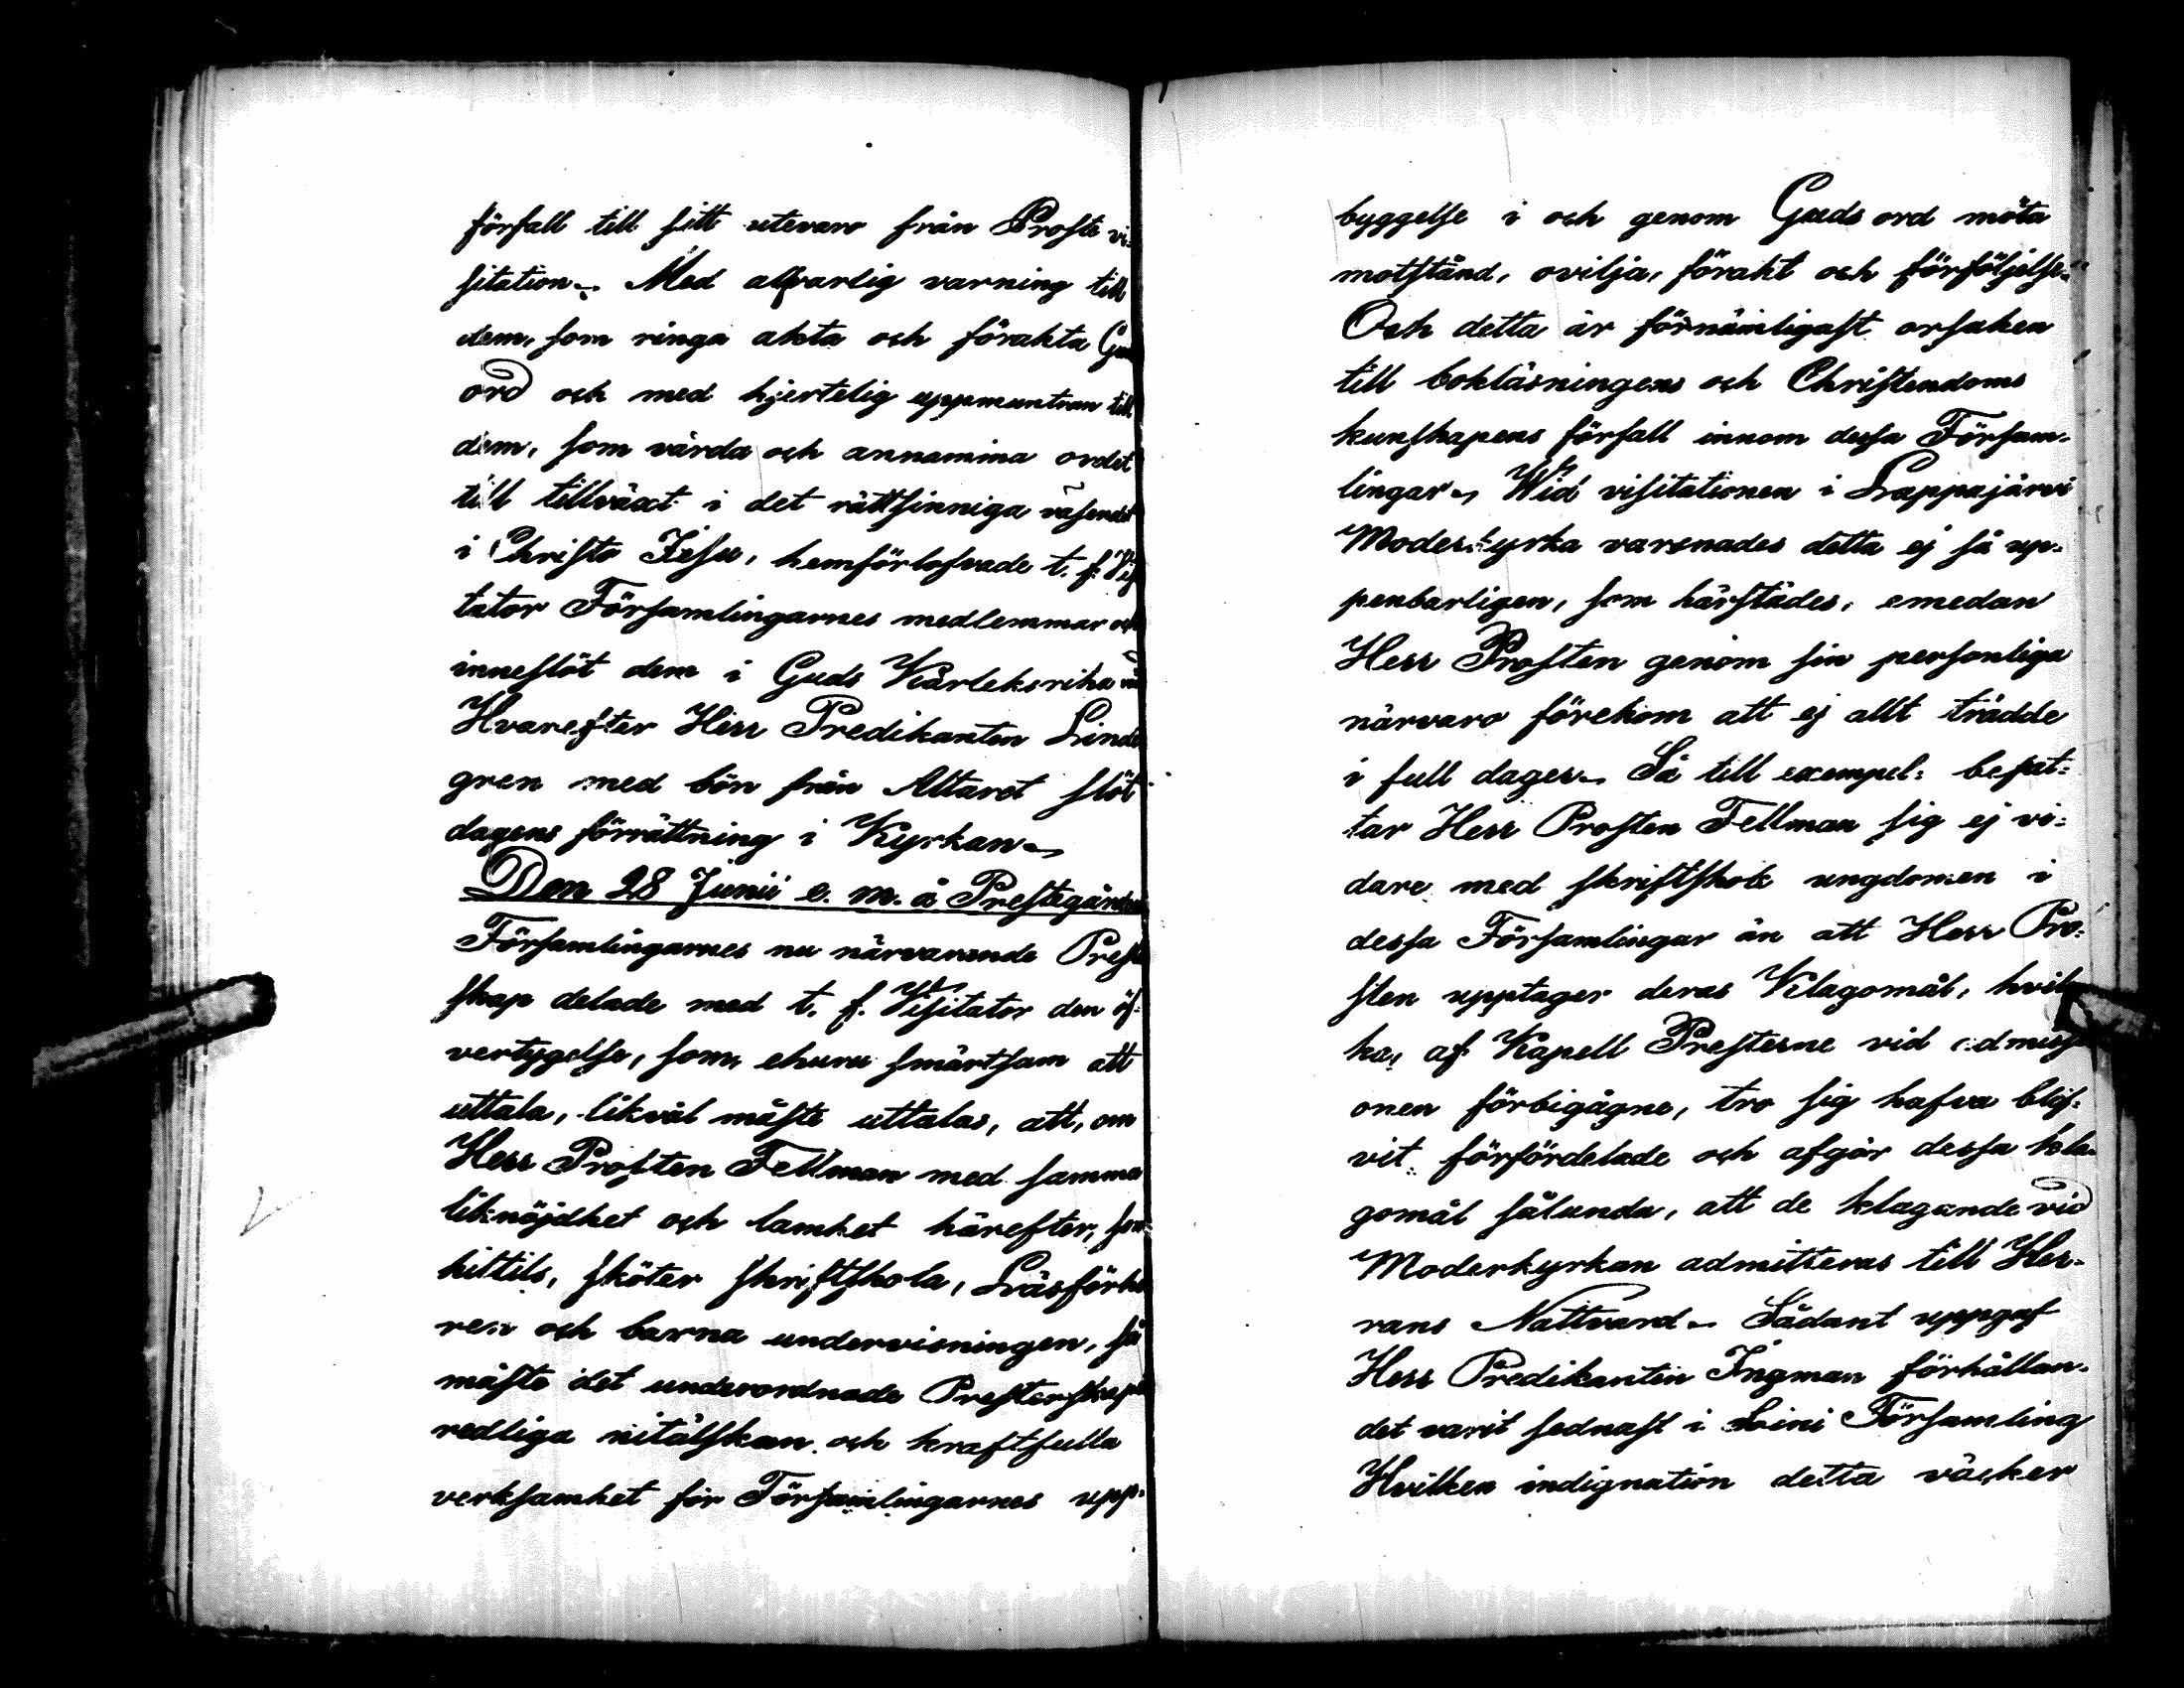 förfall till sitt utevaro från Proste vi-
sitation. Med allvarlig varning till
dem, som ringa akta och förakta Gu
ord och med hjertelig uppmuntran till
dem, som vårda och annamma ordet
till tillväxt i det rättsinniga väsendet
i Christo Jesu, hemförlofvade t. f. Visi
tator Församlingarnes medlemmar och
inneslöt dem i Guds Kärleksrika
Hvarefter Herr Predikanten Lind
gren med bön från Altaret slöt
dagens förrättning i Kyrkan.
Den 28 Junii e. m. å Prestegården
Församlingarnes nu närvarande Preste
skap delade med t. f. Visitator den öf-
vertygelse, som, ehuru smärtsam att
uttala, likväl måste uttalas, att, om
Herr Prosten Fellman med samma
liknöjdhet och lamhet härefter, som
hittils, sköter skriftskola, Läsförhö
ren och barna undervisningen, så
måste det underordnade Presterskapets
redliga nitälskan och kraftfulla
verksamhet för Församlingarnes upp-
byggelse i och genom Guds ord möta
motstånd, ovilja, förakt och förföljelse.
Och detta är förnämligast orsaken
till bokläsningens och Christendoms
kunskapens förfall innom dessa Försam-
lingar. Wid visitationen i Lappajärvi
Moderkyrka varsnades detta ej så up-
penbarligen, som härstädes, emedan
Herr Prosten genom sin personliga
närvaro förekom att ej allt trädde
i full dager. Så till exempel: befat-
tar Herr Prosten Fellman sig ej vi-
dare med skriftskole ungdomen i
dessa Församlingar än att Herr Pro-
sten upptager deras Klagomål, hvil-
ka, af Kapell Presterne vid admissi
onen förbigågne, tro sig hafva blif-
vit förfördelade och afgör dessa kla-
gomål sålunda, att de klagande vid
Moderkyrkan admitteras till Her-
rans Nattvard. Sådant uppgaf
Herr Predikanten Ingman förhållan-
det varit sednast i Soini Församling
Hvilken indignation detta väcker